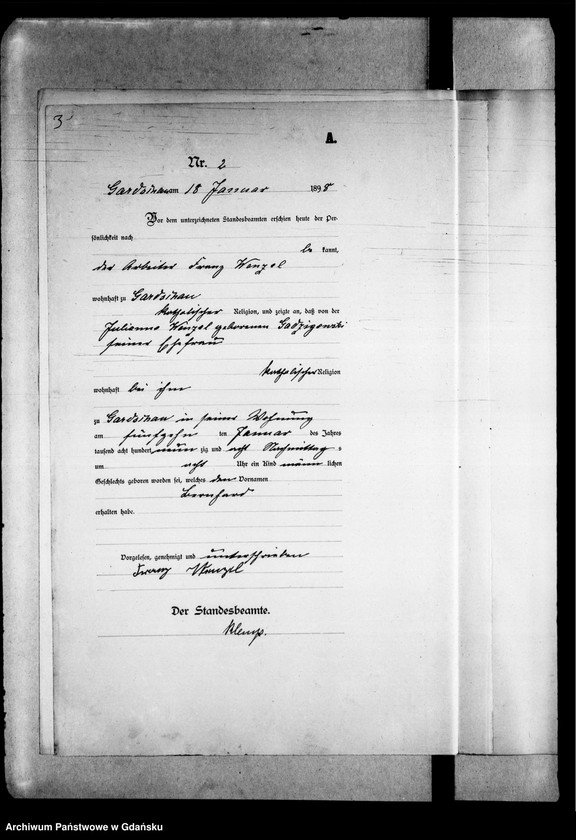 3
A.
Nr. 2
Gardschau am 18 Januar 1898
Vor dem unterzeichneten Standesbeamten erschien heute der Per-
sönlichkeit nach
be kannt,
der Arbeiter Franz Wenzel
wohnhaft zu Gardschau
katholischer Religion, und zeigte an, daß von der
Julianna Wenzel geborenen
seiner Ehefrau
katholischer Religion
wohnhaft bei ihm
zu Gardschau in seiner Wohnung
am fünfzehn ten Januar des Jahres
tausend acht hundert neun zig und acht Nachmittag s
um acht Uhr ein Kind männ lichen
Geschlechts geboren worden sei, welches den Vornamen
Bernhard
erhalten habe.
Vorgelesen, genehmigt und unterschrieben
Franz Wenzel
Der Standesbeamte.
Klemp.
Archiwum Państwowe w Gdańsku